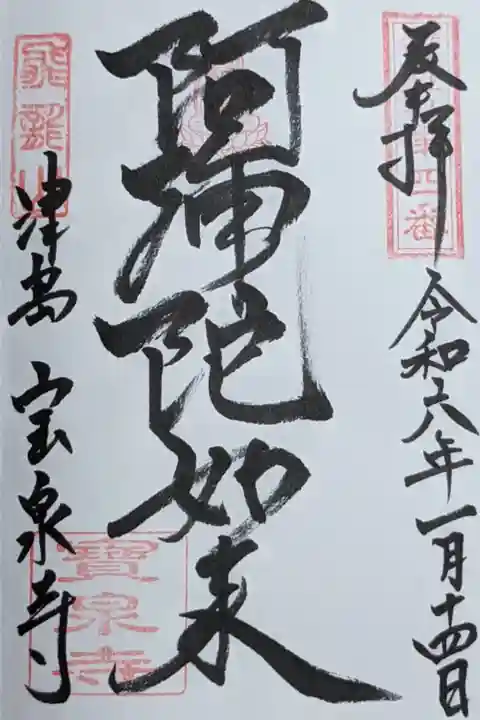 奉拝
令和六年一月十四日
阿弥陀如来
津島 宝泉寺
飛龍山
寳泉寺